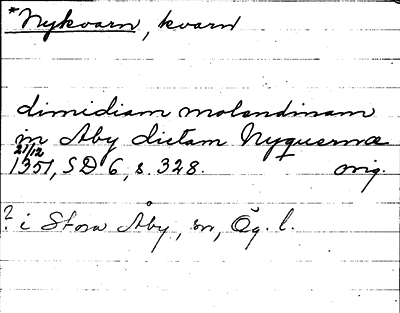 *Nykvarn, kvarn
dimidiam molendinam
in Aby dictam Nyquerna
21/12
1351, SD 6, s. 328. orig.
? i Stora Åby, sn, Ög. l.